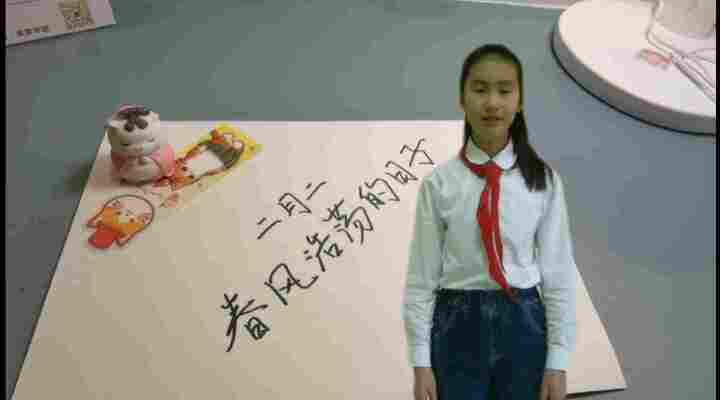 二月二
春风浩荡的日子